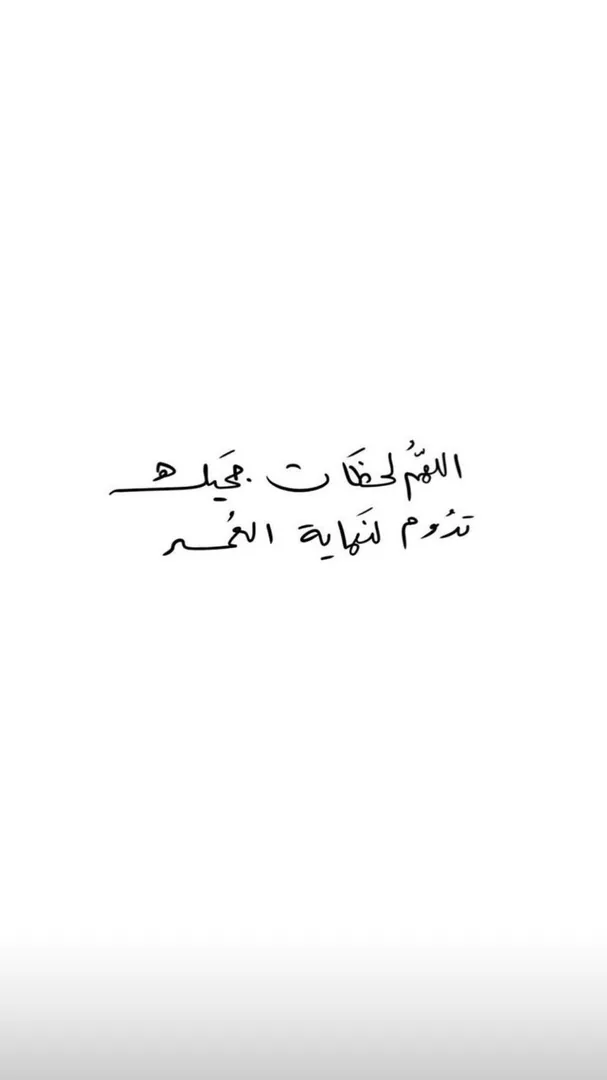 اللهُمّ لحظَات جمَيله
تدُوم لنَهاية العُمر